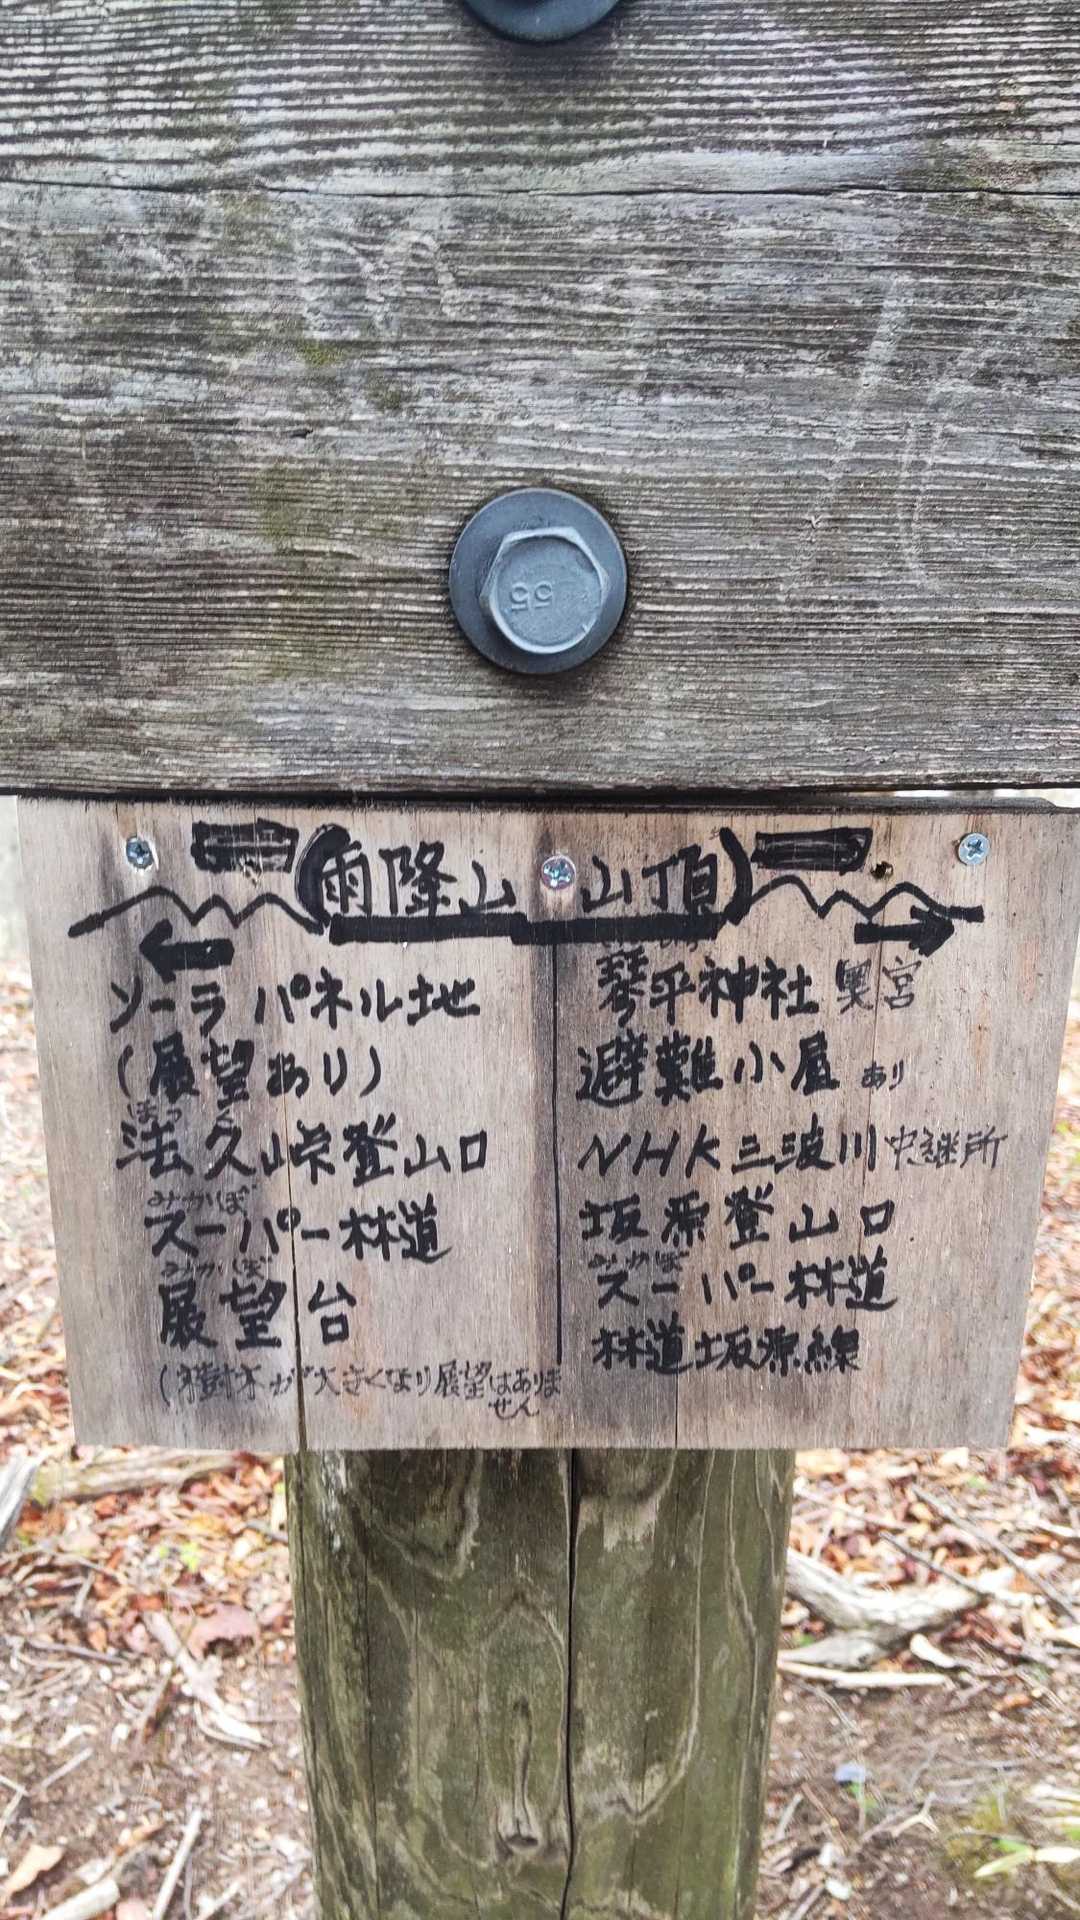 55
(雨降山 山頂)
←
ソーラパネル地
(展望あり)
ほっく
法久峠登山口
みかぼ
スーパー林道
みかぼ
展望台
(樹木が大きくなり展望はありま
せん
→
琴平神社 奥宮
避難小屋 あり
NHK三波川中継所
坂原登山口
みかぼ
スーパー林道
林道坂原線